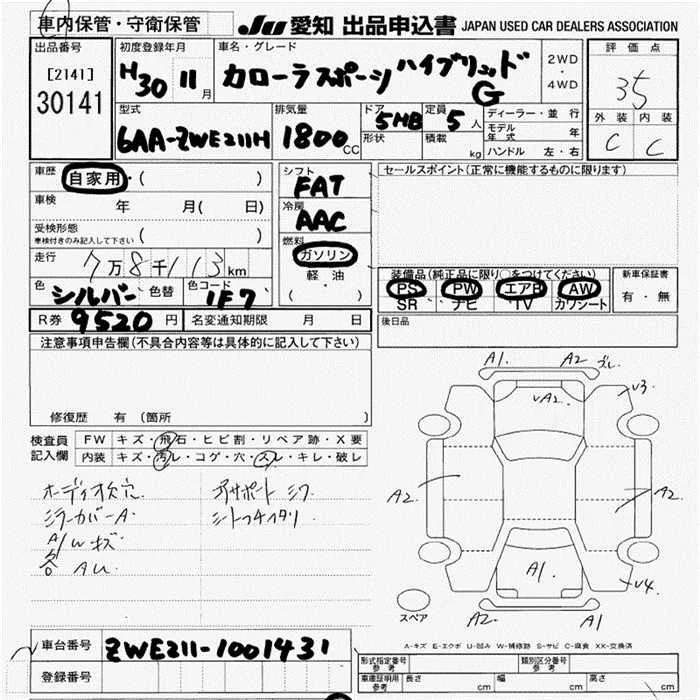 車内保管・守衛保管
JU 愛知 出品申込書 JAPAN USED CAR DEALERS ASSOCIATION
出品番号
[2141]
30141
初度登録年月
H30 11月
車名・グレード
カローラスポーツ ハイブリッド
G
2WD
・
4WD
評価点
35
外装 内装
C C
型式
6AA-ZWE211H
排気量
1800 CC
ドア 5HB
形状
定員 5人
積載 kg
ディーラー・並行
モデル年式 年
ハンドル 左・右
車歴 自家用・( )
車検 年 月( 日)
受検形態
車検付きのみ記入して下さい ( )
走行 7万8千113km
色 シルバー 色替 色コード 1F7
R券 9520 円 名変通知期限 月 日
シフト
FAT
冷房
AAC
燃料
ガソリン
・
軽・油
( )
セールスポイント(正常に機能するものに限ります)
装備品(純正品に限り○をつけてください)
PS PW エアB AW
SR ナビ TV カワシート
新車保証書
有・無
後日品
注意事項申告欄(不具合内容等は具体的に記入して下さい)
修復歴 有(箇所 )
検査員
記入欄
FW キズ・飛石・ヒビ割・リペア跡・X要
内装 キズ・汚レ・コゲ・穴・スレ・キレ・破レ
オーディオ欠穴
ミラーカバーA
A/Wキズ
各 AU
シワ
A1. A2 ズレ
V3
VA2.
A2
A2
A1.
V4
A2
A1
スペア
A-キズ E-エクボ U-凹み W-補修跡 S-サビ C-腐食 XX-交換済
車台番号 ZWE211-1001431
登録番号
形式指定番号
参考
類別区分番号
参考
車庫証明用
参考
長さ cm 幅 cm 高さ cm